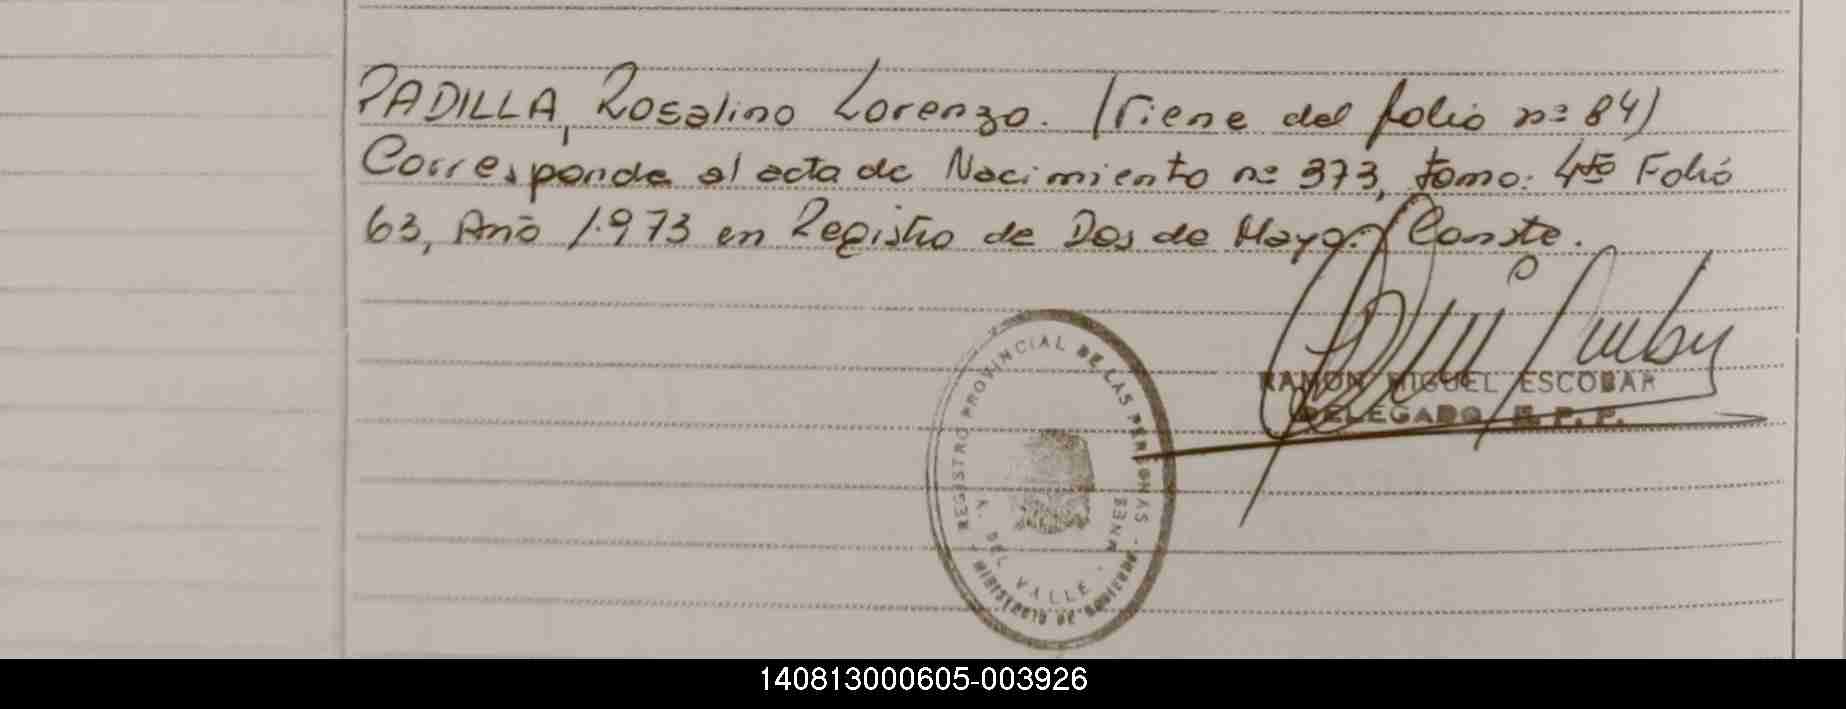 PADILLA, Rosalino Lorenzo. (Viene del folio nº 84)
Corresponde al acta de Nacimiento nº 373, tomo: 4to Folio
63, Año 1.973 en Registro de Dos de Mayo. Conste.
RAMON MIGUEL ESCOBAR
DELEGADO R. P. P.
REGISTRO PROVINCIAL DE LAS PERSONAS
V. DEL VALLE
MINISTERIO DE GOBIERNO
140813000605-003926